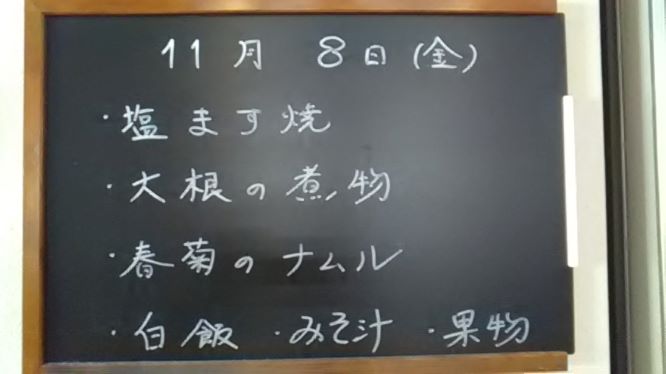 11月 8日(金)
・塩ます焼
・大根の煮物
・春菊のナムル
・白飯 ・みそ汁 ・果物